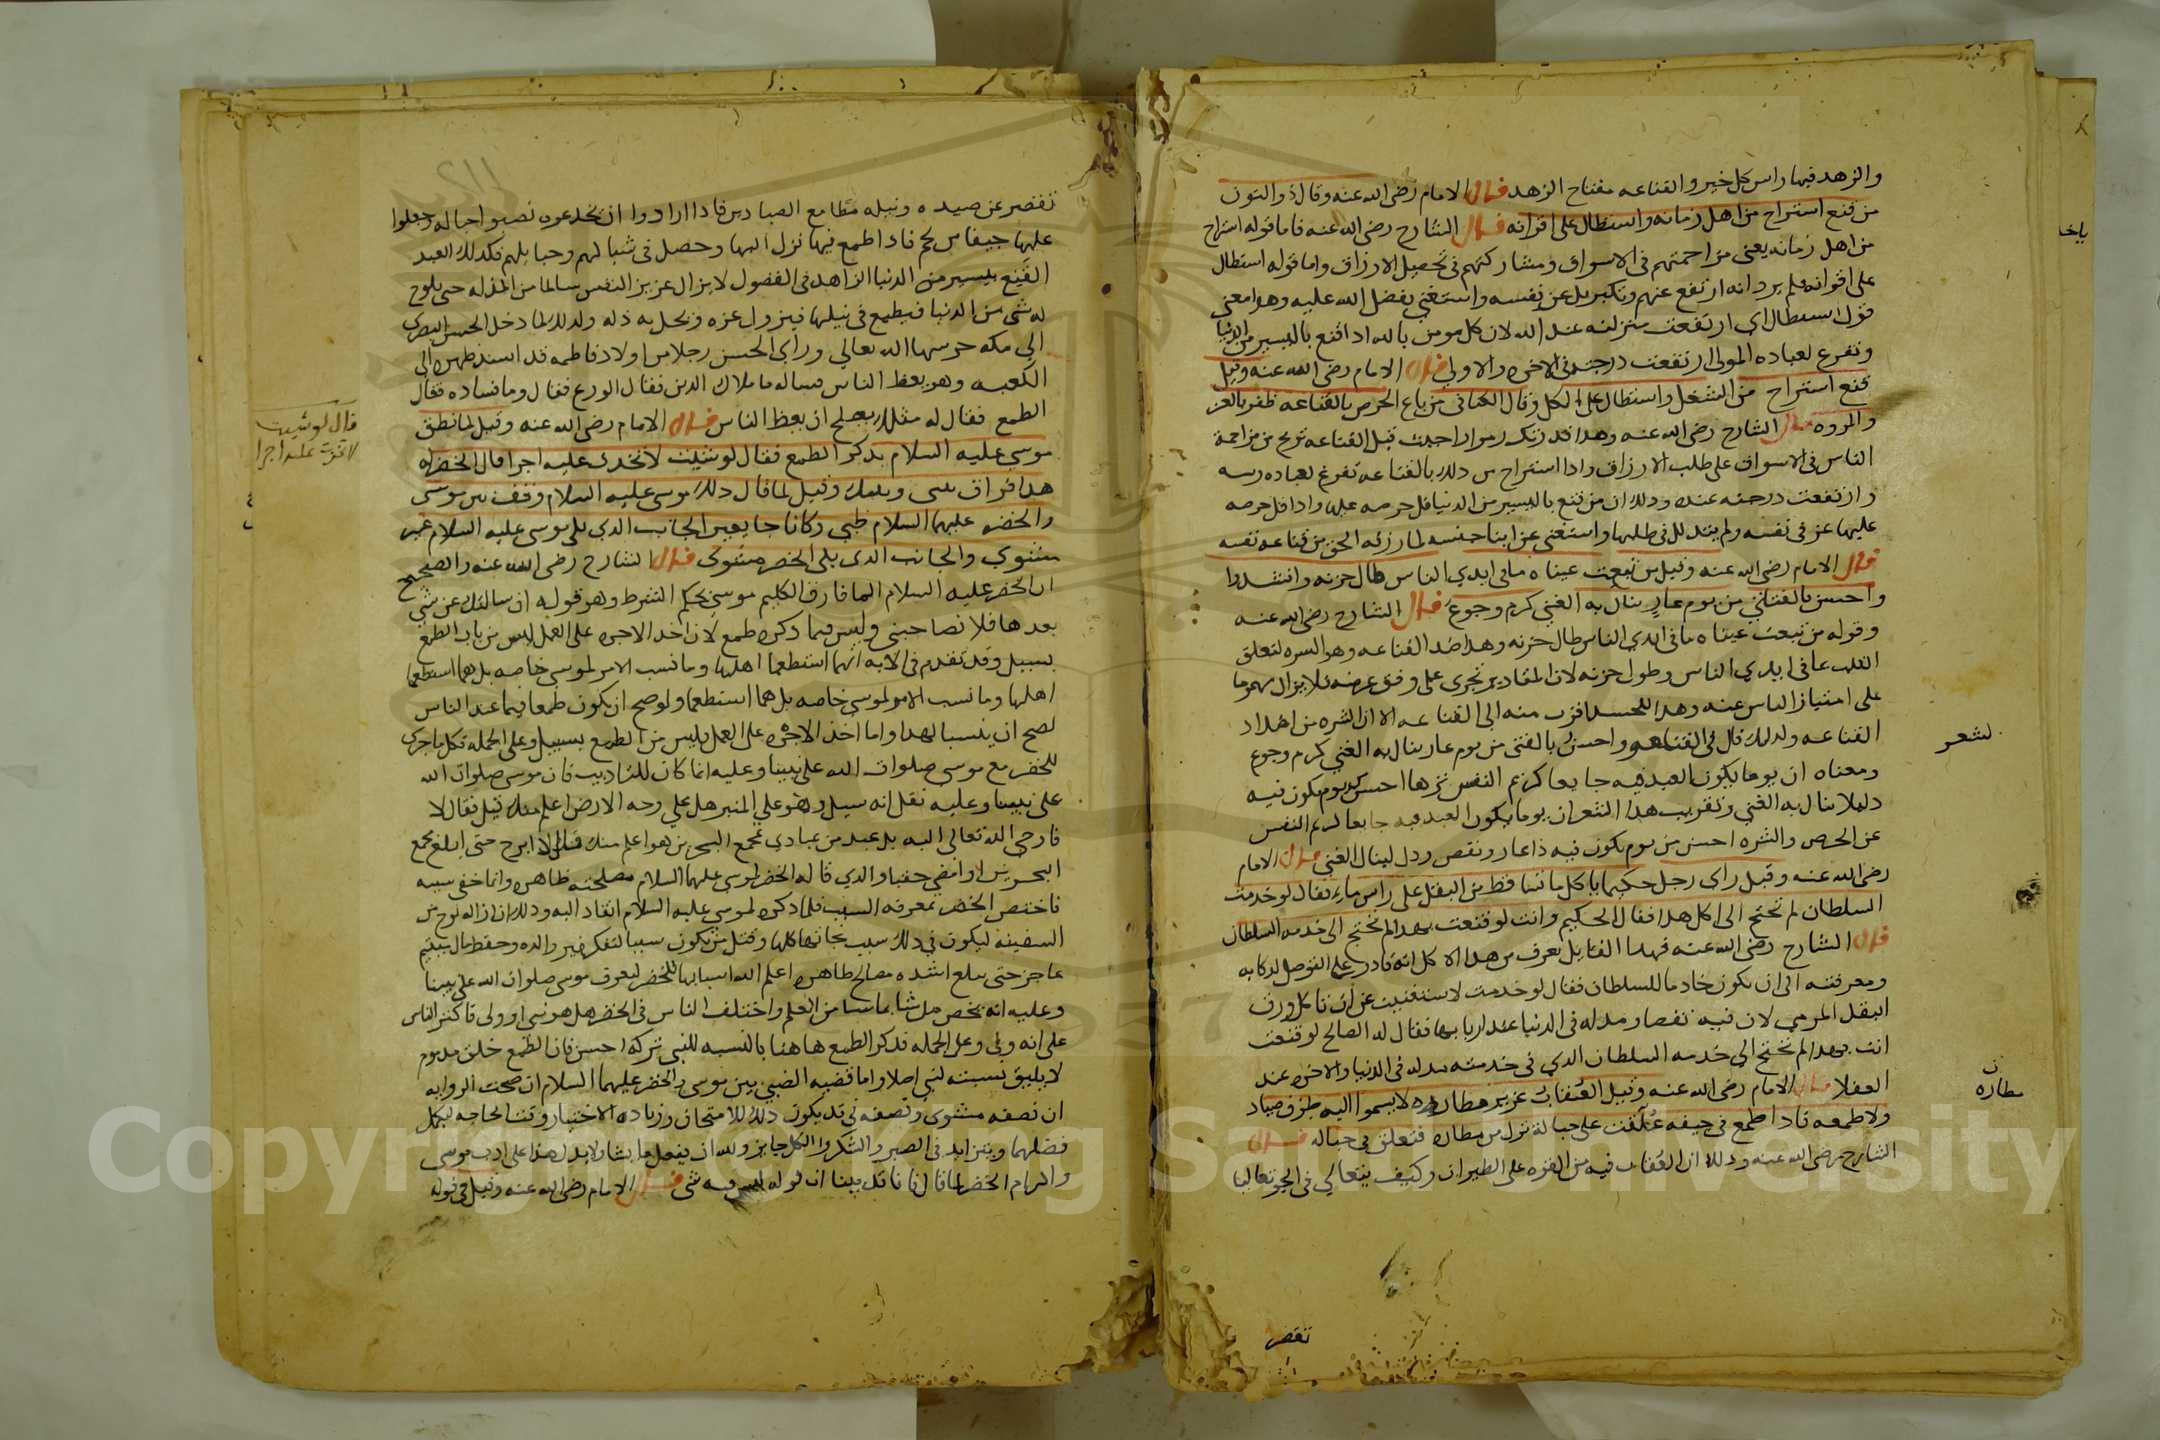 والزهد فيها راس كل خير والقناعه مفتاح الزهد قال الامام رضي الله عنه وقال ذو النون
من قنع استراح من اهل زمانه واستطال على اقرانه قال الشارح رضي الله عنه فاما قوله استراح
من اهل زمانه يعني مزاحمتهم في الاسواق ومشاركتهم في تحصيل الارزاق واما قوله استطال
على اقرانه فلم يرد انه ارتفع عنهم وتكبر بل عز نفسه واستغني بفضل الله عليه وهو معني
قول استطال اي ارتفعت منزلته عند الله لان كل مومن بالله اذا قنع باليسير من الدنيا
وتفرغ لعباده المولى ارتفعت درجته في الاخره والاولى قال الامام رضي الله عنه وقيل
من قنع استراح من الشغل واستطال على الكل وقال الكتاني من باع الحرص بالقناعه ظفر بالعز
والمروه قال الشارح رضي الله عنه وهذا قد
الناس في الاسواق على طلب الارزاق واذا استراح من ذلك بالقناعه تفرغ لعباده ربه
وارتفعت درجته عنده وذلك ان من قنع باليسير من الدنيا قل حرصه عليها واذا قل حرصه
عليها عز في نفسه ولم يتذلل في طلبها واستغني عن ابنا جنسه لما رزقه الحق من قناعه نفسه
قال الامام رضي الله عنه وقيل من تبعت عيناه ما في ايدي الناس طال حزنه وانشدوا
واحسن بالفتى من يوم عار ينال به الغني كرم وجوع قال الشارح رضي الله عنه
وقوله من تبعت عيناه ما في ايدي الناس طال حزنه وهذا ضد القناعه وهو الشره لتعلق
القلب بما في ايدي الناس وطول حزنه لان المقادير تجري على وفق غرضه فلا يزال مهموما
على امتياز الناس عنه وهذا للحسد اقرب منه الى القناعه الا ان الشره من اضداد
القناعه ولذلك قال في القناعه واحسن بالفتى من يوم عار ينال به الغني كرم وجوع
ومعناه ان يوما يكون العبد فيه جايعا كريم النفس نزهها احسن من يوم يكون فيه
ذليلا ينال به الغني وتقريب هذا الشعر ان يوما يكون العبد فيه جايعا كريم النفس
عن الحرص والشره احسن من يوم يكون فيه ذا عار ونقص وذل لينال الغني قال الامام
رضي الله عنه وقيل راى رجل حكيما ياكل ما تساقط من البقل على راس ماء فقال لو خدمت
السلطان لم تحتج الى اكل هذا فقال الحكيم وانت لو قنعت بهذا لم تحتج الى خدمه السلطان
قال الشارح رضي الله عنه فهذا القايل يعرف من هذا الاكل انه قادر على التوصل لذكايه
ومعرفته الى ان يكون خادما للسلطان فقال لو خدمت لاستغنيت عن ان تاكل ورق
البقل المرمي لان فيه نقصا ومذله في الدنيا عند اربابها فقال له الصالح لو قنعت
انت بهذا لم تحتج الى خدمه السلطان الذي في خدمته مذله في الدنيا والاخره عند
العقلا قال الامام رضي الله عنه وقيل العقاب عزيز مطاره لا يسموا اليه طرف صياد
ولا طمعه فاذا طمع في جيفه علقت على حباله نزل من مطاره فتعلق في حباله قال
الشارح رضي الله عنه وذلك ان العقاب فيه من القوه على الطيران وكيف يتعالى في الجو تعاليا
لشعر
مطاره
تقصر
تقصر عن صيده ونيله مطامع الصيادين فاذا ارادوا ان يخدعوه نصبوا حباله وجعلوا
عليها جيفا من لحم فاذا طمع فيها نزل اليها وحصل في شباكهم وحبايلهم فكذلك العبد
القنع بيسير من الدنيا الزاهد في الفضول لا يزال عزيز النفس سالما من المذله حتى يلوح
له شي من الدنيا فيطمع في نيلها فيزول عزه ويحل به ذله ولذلك لما دخل الحسن البصري
الى مكه حرسها الله تعالى وراى الحسن رجلا من اولاد فاطمه قد اسند ظهره الى
الكعبه وهو يعظ الناس فساله ما ملاك الدين فقال الورع فقال وما فساده فقال
الطمع فقال له مثلك يصلح ان يعظ الناس قال الامام رضي الله عنه وقيل لما نطق
موسى عليه السلام بذكر الطمع فقال لو شيت لاتخذت عليه اجرا قال الخضر له
هذا فراق بيني وبينك وقيل لما قال ذلك موسى عليه السلام وقف بين موسى
والخضر عليهما السلام ظبي وكانا جايعين الجانب الذي يلي موسى عليه السلام غير
مشوي والجانب الذي يلي الخضر مشوى قال الشارح رضي الله عنه والصحيح
ان الخضر عليه السلام انما فارق الكليم موسى بحكم الشرط وهو قوله ان سالتك عن شي
بعدها فلا تصاحبني وليس فيما ذكره طمع لان اخذ الاجره على العمل ليس من باب الطمع
بسبيل وقد تقدم في الايه انهما استطعما اهلها وما نسب الامر لموسى خاصه بل هما استطعما
اهلها وما نسب الامر لموسى خاصه بل هما استطعما ولو صح ان يكون طمعا فيما عند الناس
لصح ان ينسبا لهذا واما اخذ الاجره على العمل فليس من الطمع بسبيل وعلى الجمله فكل ما جرى
للخضر مع موسى صلوات الله على نبينا وعليه انما كان للتاديب فان موسى صلوات الله
على نبينا وعليه نقل انه سيل وهو على المنبر هل على وجه الارض اعلم منك قيل فقال لا
فاوحى الله تعالى اليه بل عبد من عبادي بمجمع البحرين هو اعلم منك فقال لا ابرح حتى ابلغ مجمع
البحرين او امضي حقبا والذي قاله الخضر لموسى عليهما السلام مصلحته ظاهره وانما خفي سببه
فاختص الخضر بمعرفه السبب فلما ذكره لموسى عليه السلام انقاد اليه وذلك ان ازاله لوح من
السفينه ليكون في ذلك سبب نجاتها كلها وقتل من يكون سببا لتفكير والده وحفظ مال يتيم
عاجز حتى يبلغ اشده مصالح ظاهره اعلم الله اسبابها للخضر ليعرف موسى صلوات الله على نبينا
وعليه انه يخص من يشا بما يشا من العلم واختلف الناس في الخضر هل هو نبي او ولى فاكثر الناس
على انه ولى وعلى الجمله فذكر الطمع هاهنا بالنسبه للنبي تركه احسن فان الطمع خلق مذموم
لا يليق نسبته لنبي اصلا واما قضيه الضبي بين موسى والخضر عليهما السلام ان صحت الروايه
ان نصفه مشوى ونصفه ني قد يكون ذلك للامتحان وزياده الاختبار وقت الحاجه ليكمل
فضلهما ويتزايد في الصبر والشكر والكل جايز ولله ان يفعل ما يشا
والزام الخضر لما قال فانا قد بينا ان قوله ليس فيه شي قال الامام رضي الله عنه وقيل في قوله
قال لو شيت
لاتخذت عليه اجرا